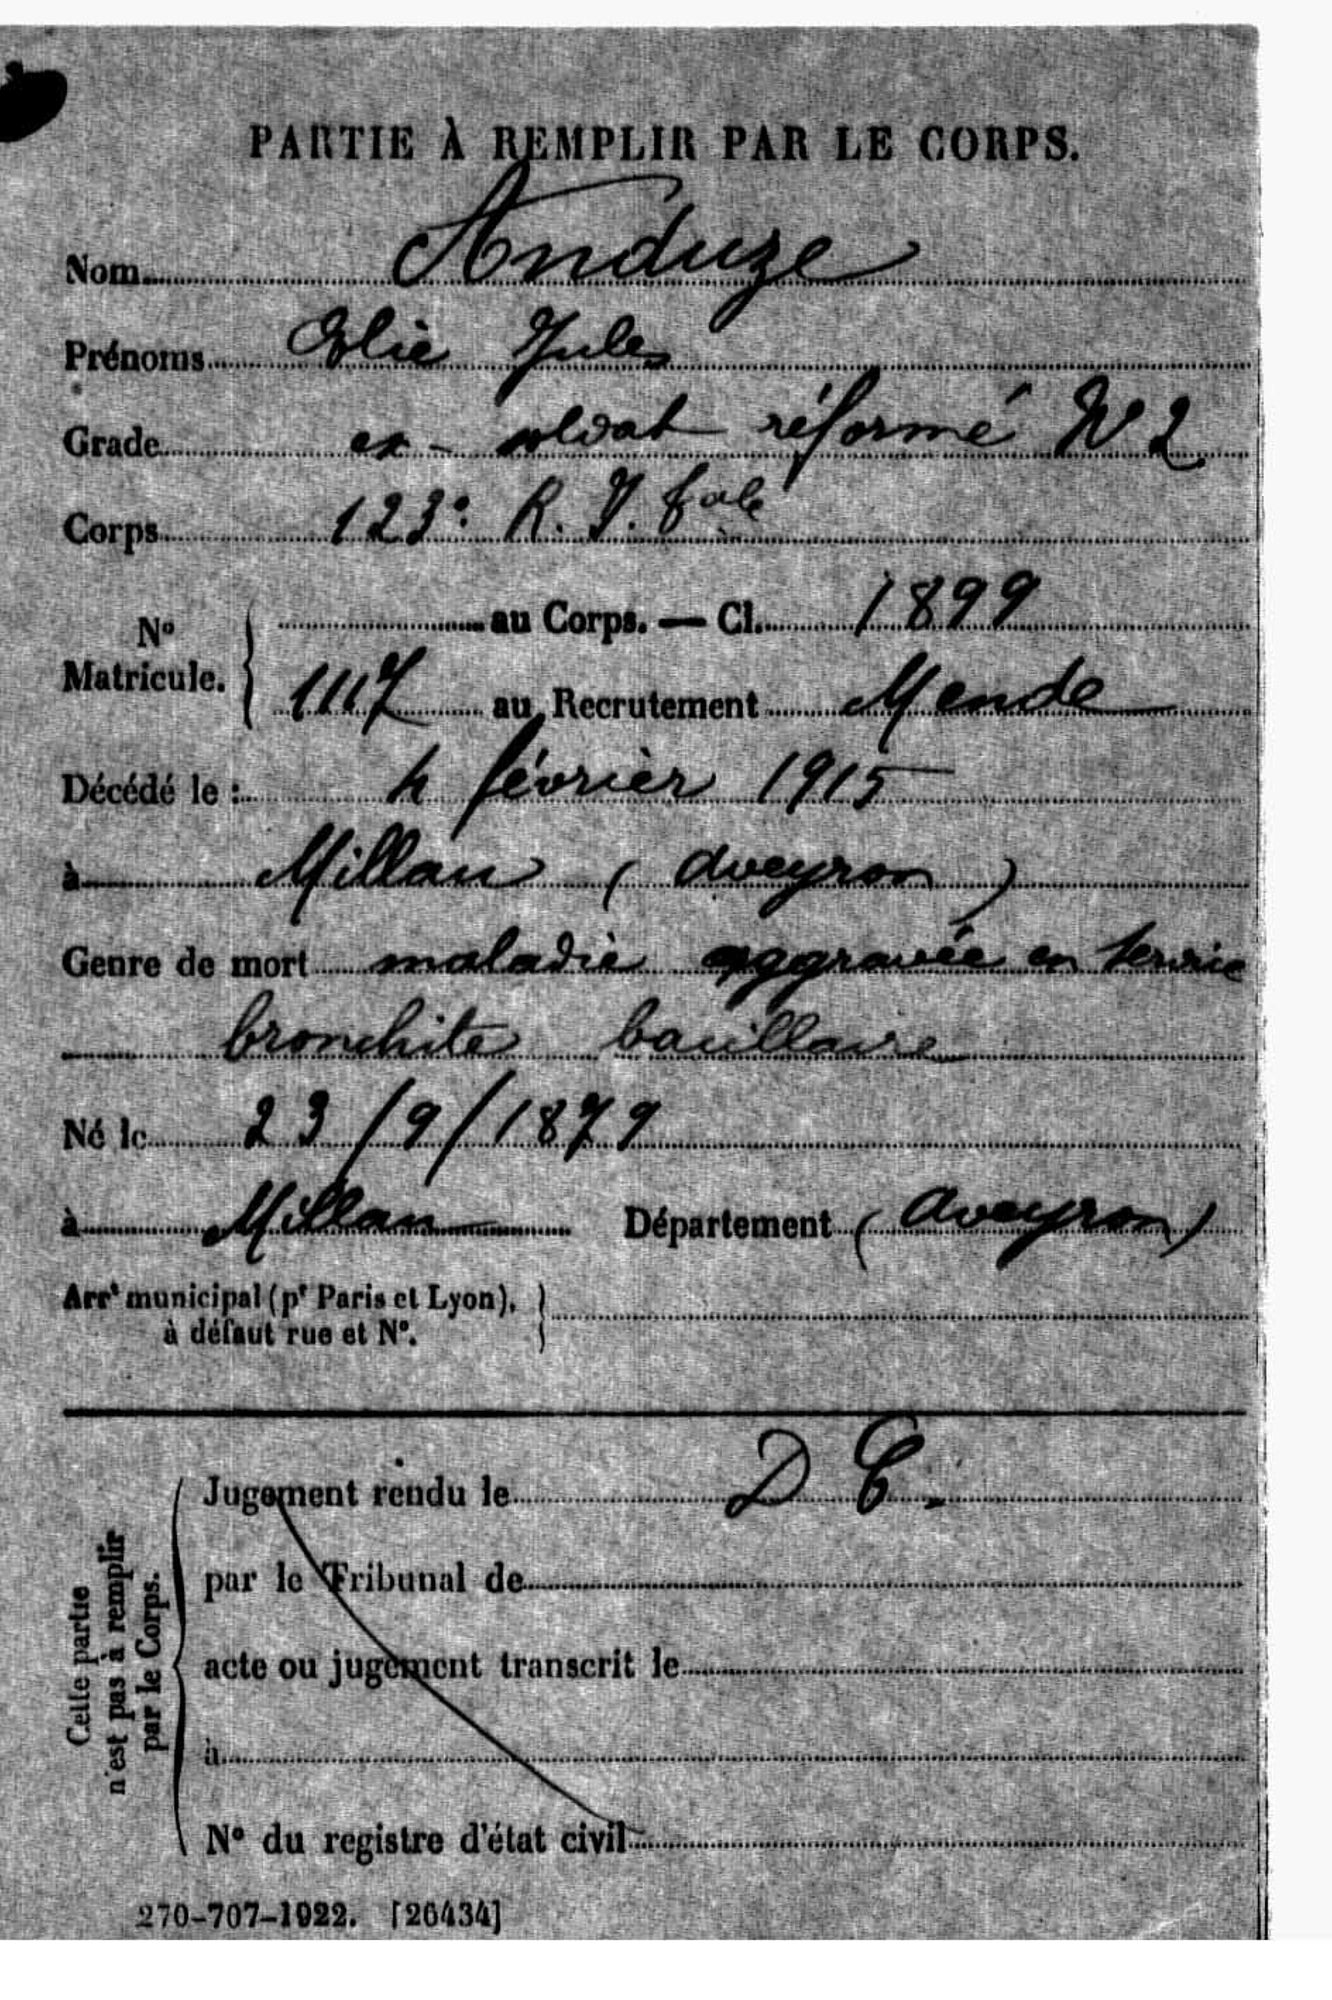 PARTIE À REMPLIR PAR LE CORPS.
Nom Anduze
Prénoms Elie Jules
Grade ex-soldat réformé N° 2
Corps 123e R. I. tale
N° Matricule. au Corps. — Cl. 1899
1117 au Recrutement Mende
Décédé le : 4 février 1915
à Millau (Aveyron)
Genre de mort maladie aggravée en service
bronchite bacillaire
Né le 23/9/1879
à Millau Département (Aveyron)
Arrt municipal (pr Paris et Lyon),
à défaut rue et N°.
Cette partie
n'est pas à remplir
par le Corps.
Jugement rendu le D C.
par le Tribunal de
acte ou jugement transcrit le
à
N° du registre d'état civil
270-707-1922. [26434]